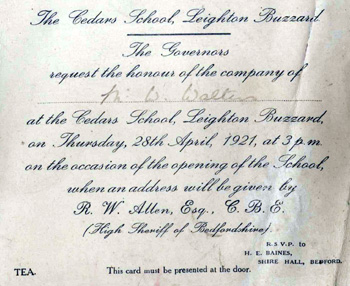 The Cedars School, Leighton Buzzard
The Governors
request the honour of the company of
W. Walter
at the Cedars School, Leighton Buzzard,
on Thursday, 28th April, 1921, at 3 p.m
on the occasion of the opening of the School,
when an address will be given by
R. W. Allen, Esq., C. B. E.
(High Sheriff of Bedfordshire).
R.S.V.P. to
H. E. BAINES,
SHIRE HALL, BEDFORD.
TEA.
This card must be presented at the door.